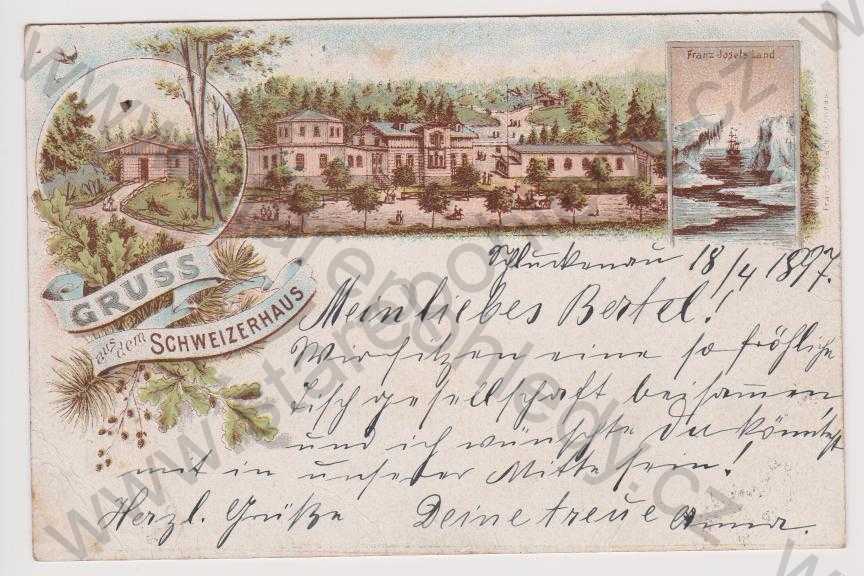 Franz-Josefs Land
GRUSS
aus dem SCHWEIZERHAUS
Schluckenau 18/4 1897.
Mein liebes Bertel!
Wir sitzen eine so fröhliche
Tischgesellschaft beisammen
und ich wünschte Du könntest
mit in unserer Mitte sein!
Herzl. Grüße Deine treue Anna.
www.starepohledy.cz